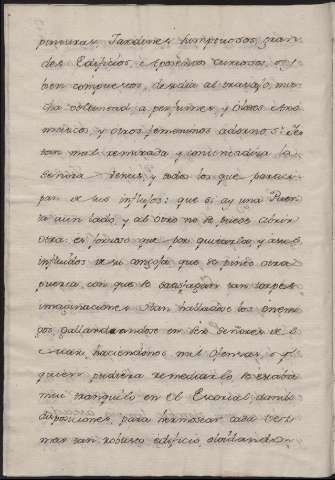 pinturas Jardines sumptuosos, gran
des Edificios, Aposentos curiosos, y
bien compuestos, de dia al trabajo, mu
cha voluntad a perfumes, y Olores Aro
maticos, y otros femeninos adornos:
tan mal remirada y continentiva la
señora Venus, y todos los que partici
pan de sus influjos: que si ay una Puer
ta a un lado, y al otro no la puede abrir
otra es forzoso que por quitarla, y
influidos de su congoja que le pinte otra
puerta con que le satisfagan tan torpes
imaginaciones. Han hallado los enemi
gos gallardeandose en ser señores de el
mar, haciendonos mil ofensas, y
quien pudiera remediarlo, se estaba
mui tranquilo en el Escorial dando
disposiciones para hermosear cada vez
mas tan robusto edificio, olvidando